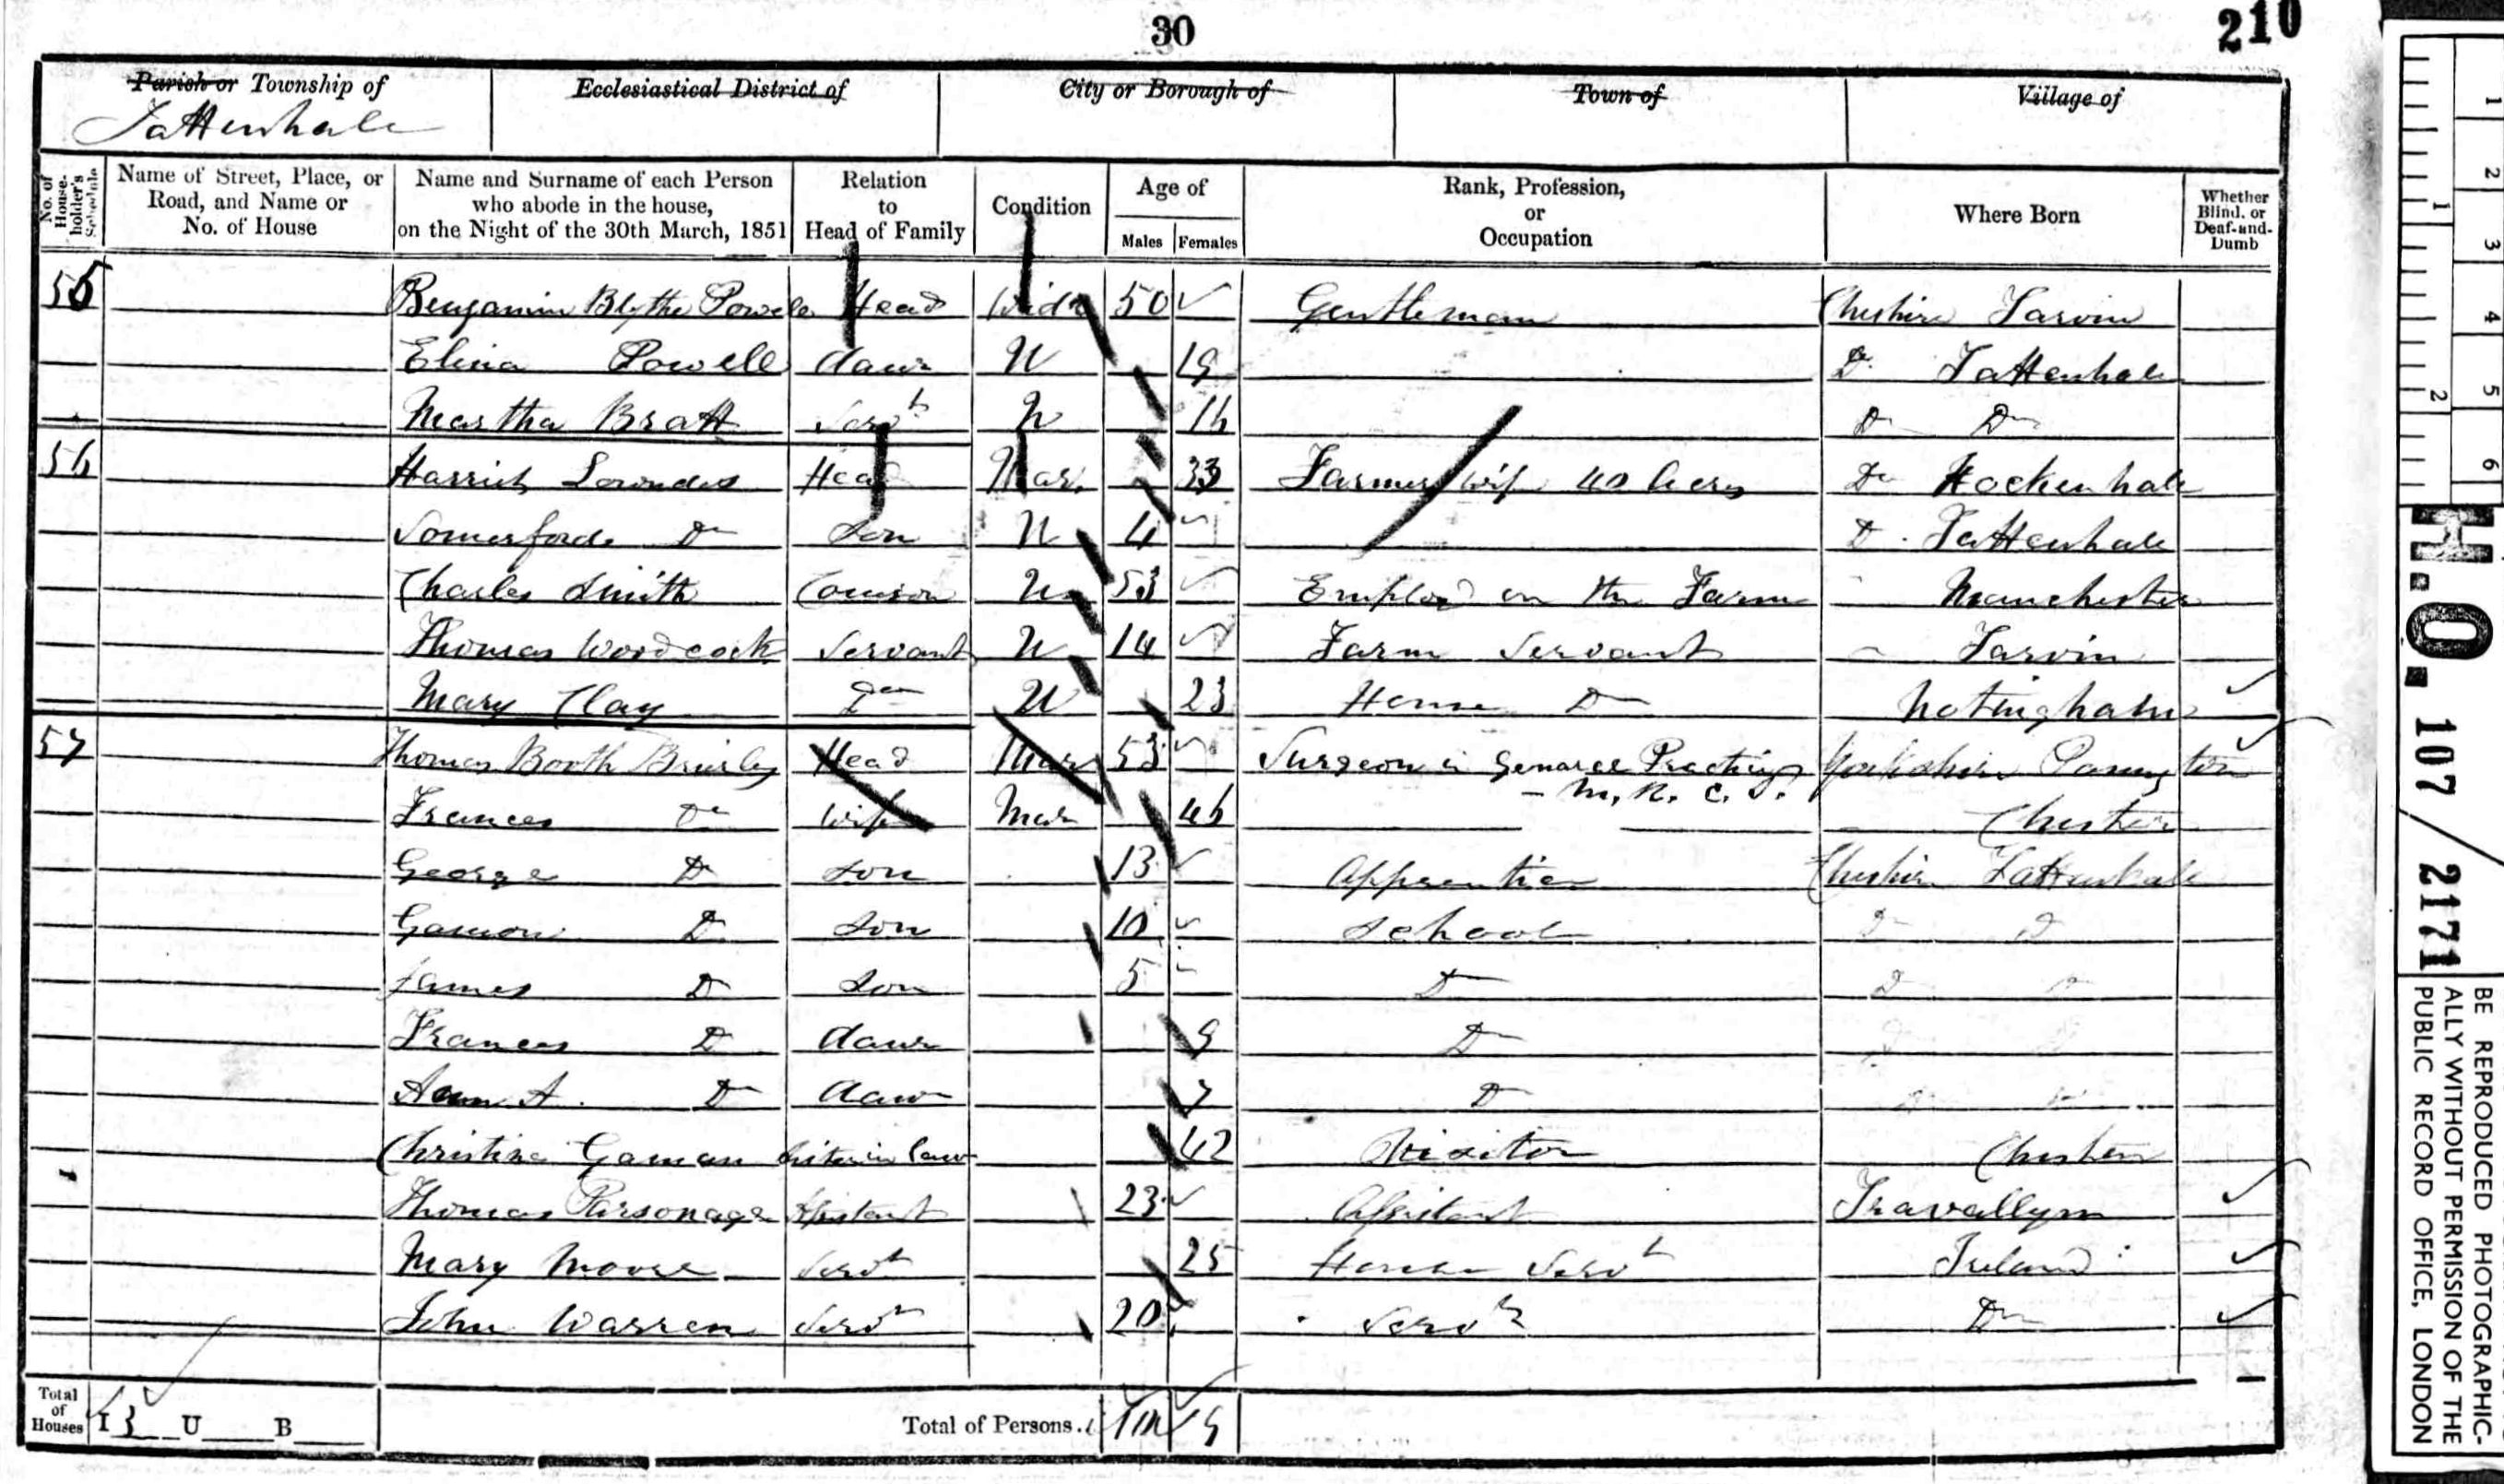 30
210
Parish or Township of
Tattenhall
Ecclesiastical District of
City or Borough of
Town of
Village of
No. of House-holder's Schedule
Name of Street, Place, or Road, and Name or No. of House
Name and Surname of each Person who abode in the house, on the Night of the 30th March, 1851
Relation to Head of Family
Condition
Age of
Males Females
Rank, Profession, or Occupation
Where Born
Whether Blind, or Deaf-and-Dumb
55 Benjamin Blythe Powell Head Widr 50 Gentleman Cheshire Tarvin
Eliza Powell daur U 19 Do Tattenhall
Martha Bratt Servt U 16 Do Do
56 Harriet Lowndes Head Mar. 33 Farmers wife 40 Acres Do Hockenhall
Somerford Do Son U 4 Do Tattenhall
Charles Smith Cousin U 53 Employd on the Farm Manchester
Thomas Woodcock Servant U 14 Farm Servant Tarvin
Mary Clay Do U 23 House Do Notingham
57 Thomas Booth Brierley Head Mar 53 Surgeon in General Practice Yorkshire
- M. R. C. S.
Frances Do Wife Mar 46 Chester
George Do Son 13 Apprentice Cheshire Tattenhall
Gamon Do Son 10 School Do Do
James Do Son 5 Do Do Do
Frances Do daur 9 Do Do Do
Ann A. Do daur 7 Do Do Do
Christine Gaman Sister in law 42 Visitor Chester
Thomas Parsonage Assistant 23 Assistant Travallyn
Mary Moore Servt 25 House Servt Ireland
John Warren Servt 20 Servt Do
Total of Houses I 3 U B
Total of Persons 10 9
H.O. 107 / 2171
BE REPRODUCED PHOTOGRAPHIC-
ALLY WITHOUT PERMISSION OF THE
PUBLIC RECORD OFFICE, LONDON
1 2 3 4 5 6
1 2